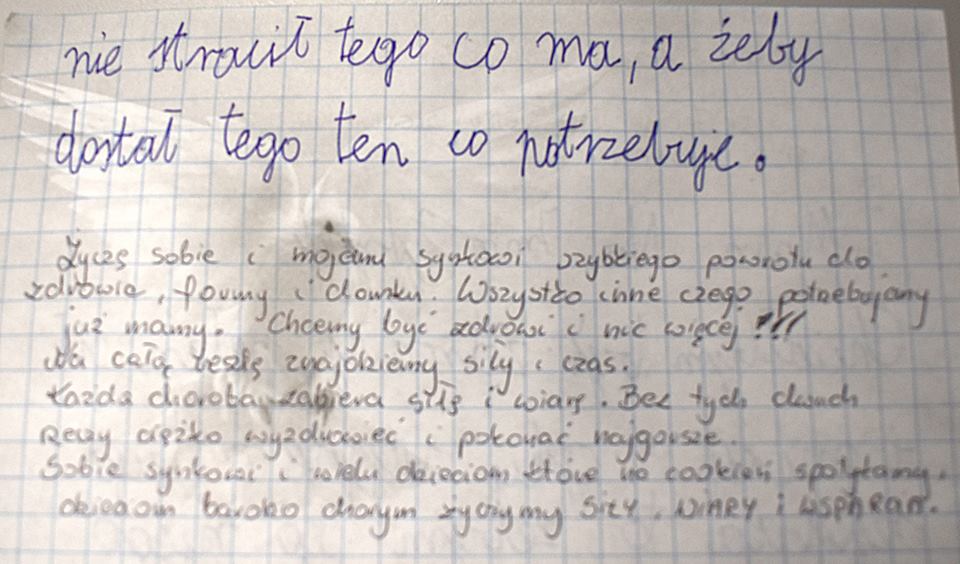 nie stracił tego co ma, a żeby
dostał tego ten co potrzebuje.
Życzę sobie i mojemu synkowi szybkiego powrotu do
zdrowia, formy i domku. Wszystko inne czego potrzebujemy
już mamy. Chcemy być zdrowi i nic więcej !!!
Na całą resztę znajdziemy siły i czas.
Każda choroba zabiera siłę i wiarę. Bez tych dwóch
Rzeczy ciężko wyzdrowieć i pokonać najgorsze.
Sobie synkowi i wielu dzieciom które na codzień spotykamy.
dzieciom bardzo chorym życzymy SIŁY, WIARY i